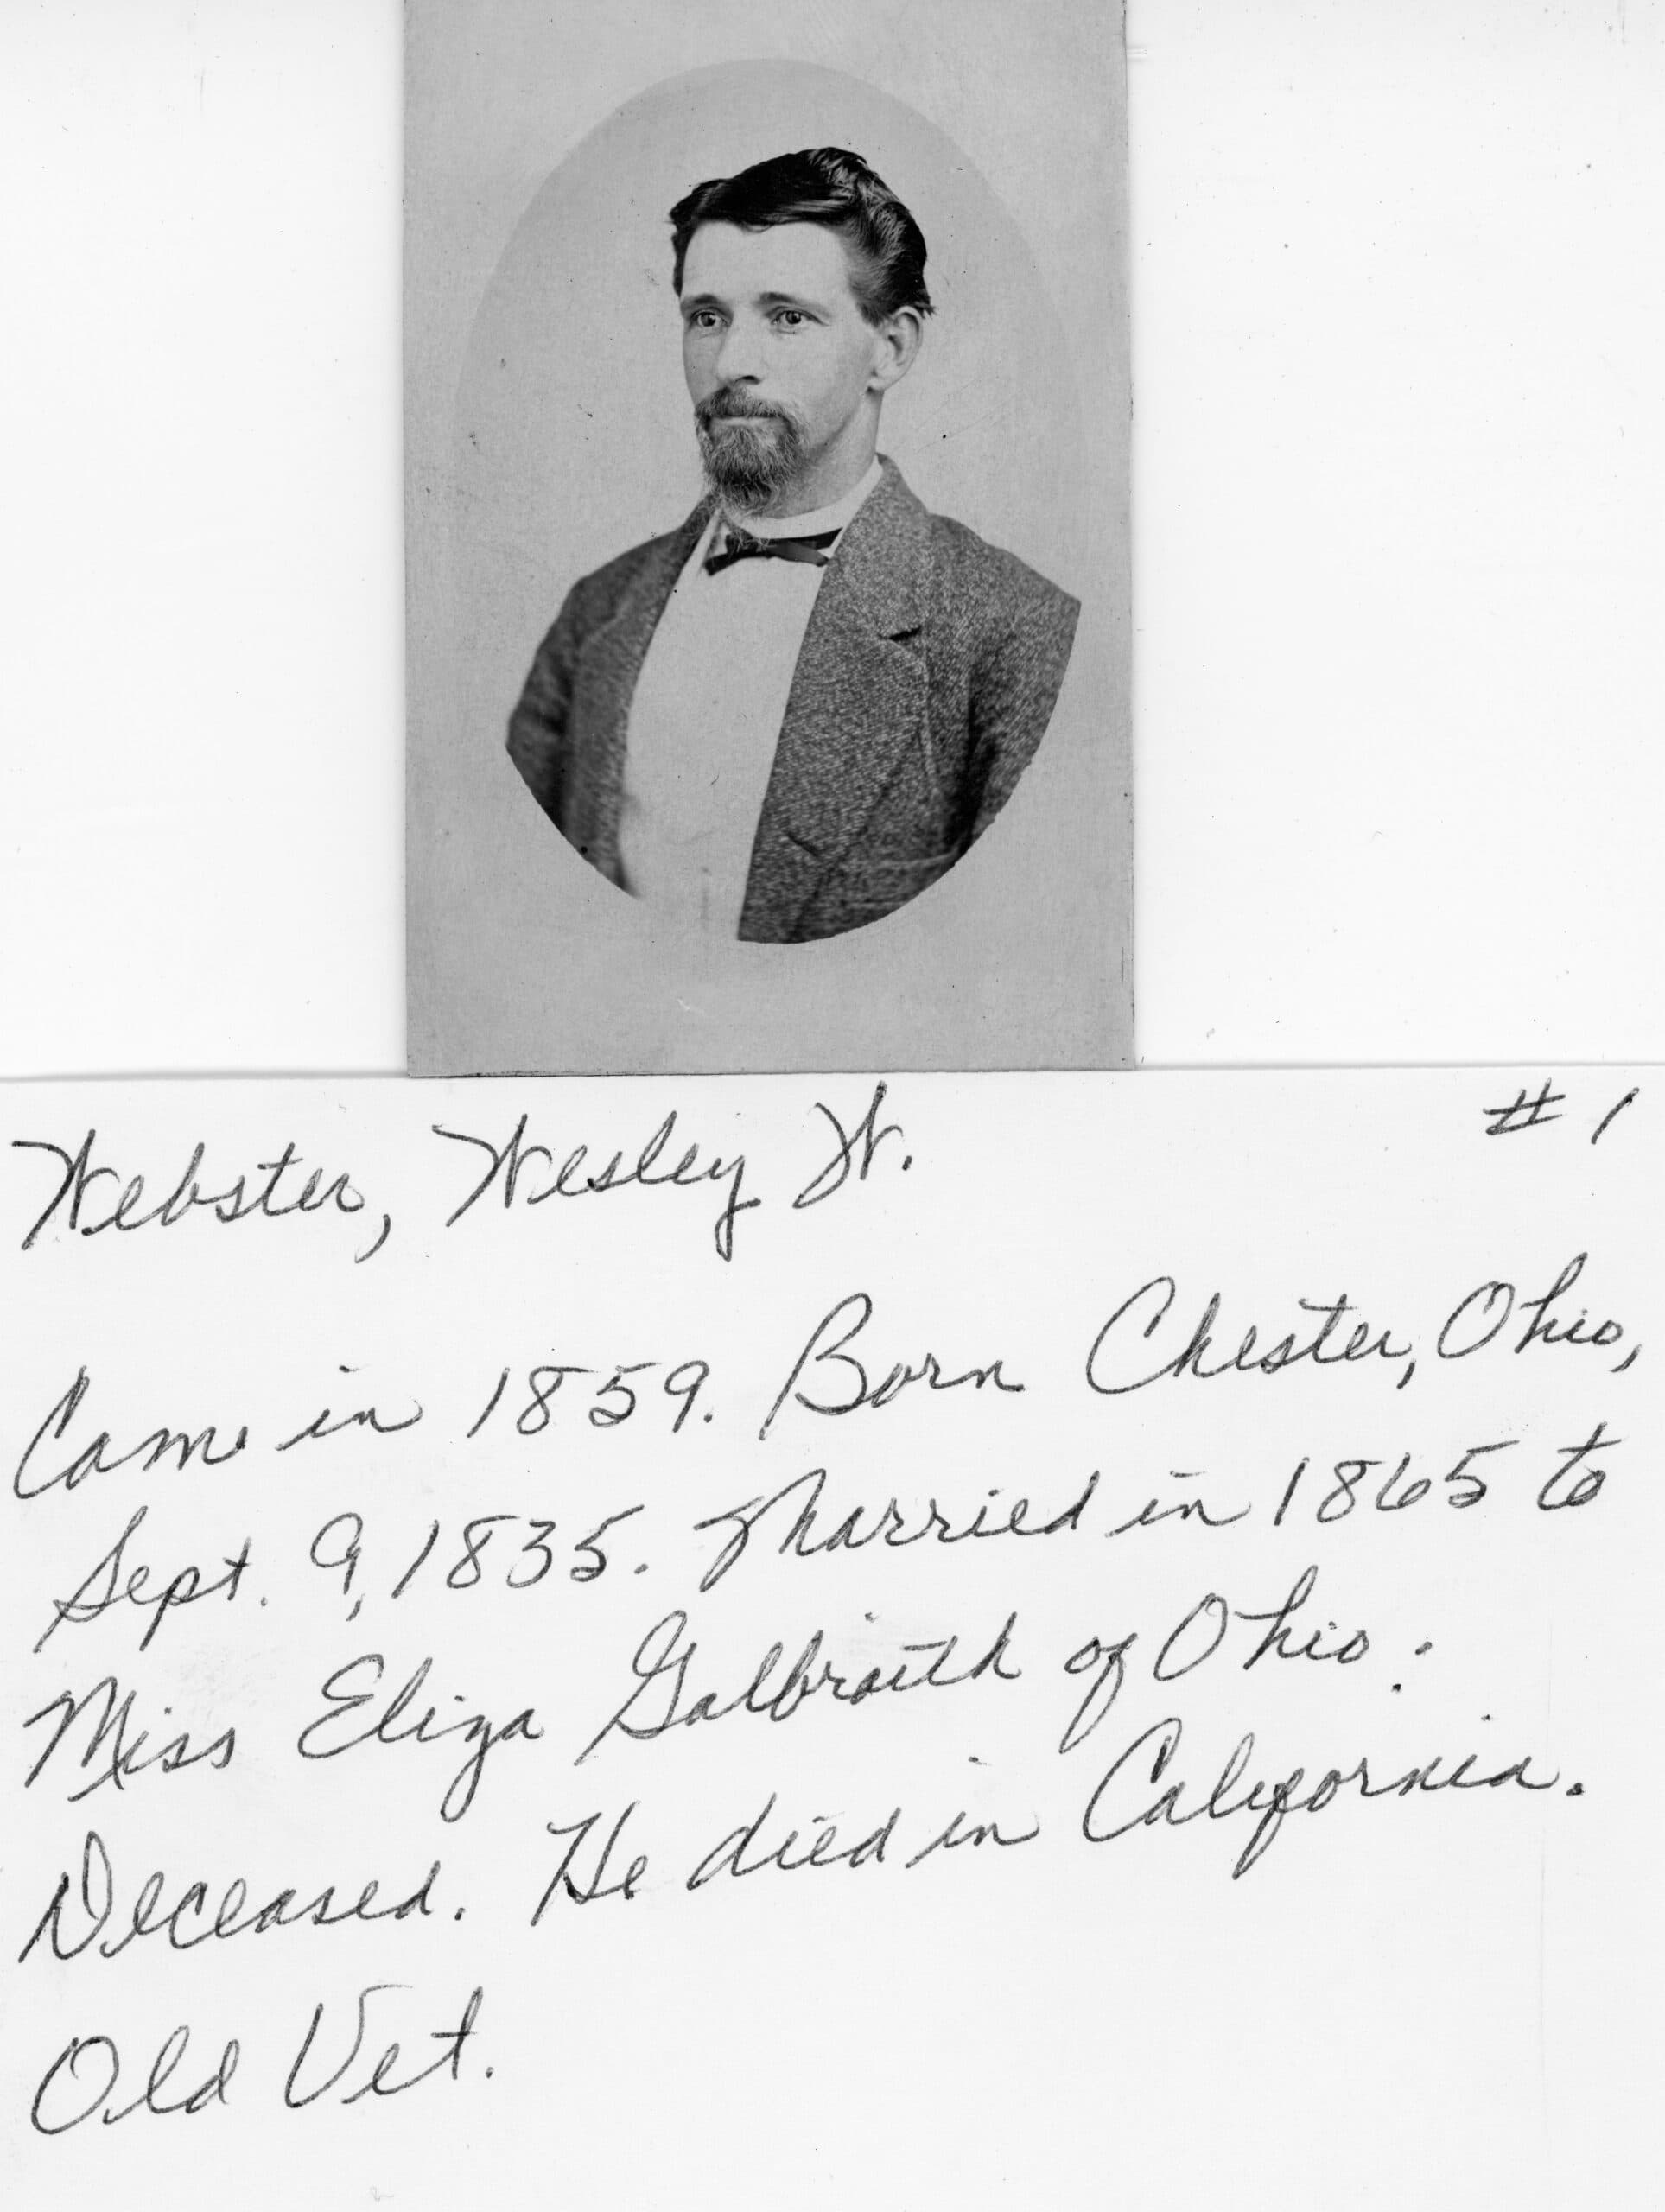 #1
Webster, Wesley W.
Came in 1859. Born Chester, Ohio,
Sept. 9, 1835. Married in 1865 to
Miss Eliza Galbraith of Ohio.
Deceased. He died in California.
Old Vet.